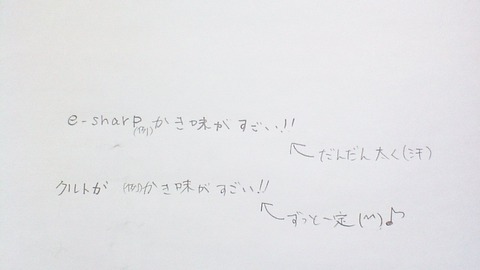 e-sharp(例)かき味がすごい!!
だんだん太く(汗)
クルトガ (例)かき味がすごい!!
ずっと一定(^^)♪